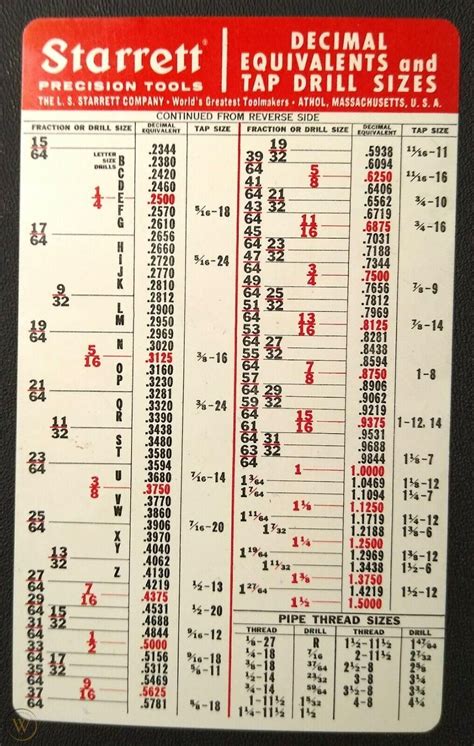 Starrett®
PRECISION TOOLS
DECIMAL
EQUIVALENTS and
TAP DRILL SIZES
THE L. S. STARRETT COMPANY • World's Greatest Toolmakers • ATHOL, MASSACHUSETTS, U. S. A.
CONTINUED FROM REVERSE SIDE
FRACTION OR DRILL SIZE DECIMAL EQUIVALENT TAP SIZE
15/64 .2344
LETTER SIZE DRILLS B .2380
C .2420
D .2460
1/4 E .2500
F .2570 5/16-18
G .2610
17/64 .2656
H .2660
I .2720 5/16-24
J .2770
K .2810
9/32 .2812
L .2900
M .2950
19/64 .2969
N .3020
5/16 .3125 3/8-16
O .3160
P .3230
21/64 .3281
Q .3320 3/8-24
R .3390
11/32 .3438
S .3480
T .3580
23/64 .3594
U .3680 7/16-14
3/8 .3750
V .3770
W .3860
25/64 .3906 7/16-20
X .3970
Y .4040
13/32 .4062
Z .4130
27/64 .4219 1/2-13
7/16 .4375
29/64 .4531 1/2-20
15/32 .4688
31/64 .4844 9/16-12
1/2 .5000
33/64 .5156 9/16-18
17/32 .5312 5/8-11
35/64 .5469
9/16 .5625
37/64 .5781 5/8-18
FRACTION OR DRILL SIZE DECIMAL EQUIVALENT TAP SIZE
19/32 .5938
39/64 .6094 11/16-11
5/8 .6250 11/16-16
41/64 .6406
21/32 .6562 3/4-10
43/64 .6719
11/16 .6875 3/4-16
45/64 .7031
23/32 .7188
47/64 .7344
3/4 .7500
49/64 .7656 7/8-9
25/32 .7812
51/64 .7969
13/16 .8125 7/8-14
53/64 .8281
27/32 .8438
55/64 .8594
7/8 .8750 1-8
57/64 .8906
29/32 .9062
59/64 .9219
15/16 .9375 1-12, 14
61/64 .9531
31/32 .9688
63/64 .9844 1 1/8-7
1 1.0000
1 3/64 1.0469 1 1/8-12
1 7/64 1.1094 1 1/4-7
1 1/8 1.1250
1 11/64 1.1719 1 1/4-12
1 7/32 1.2188 1 3/8-6
1 1/4 1.2500
1 19/64 1.2969 1 3/8-12
1 11/32 1.3438 1 1/2-6
1 3/8 1.3750
1 27/64 1.4219 1 1/2-12
1.5000
PIPE THREAD SIZES
THREAD DRILL THREAD DRILL
1/8-27 R 1 1/2-11 1/2 1 47/64
1/4-18 7/16 2-11 1/2 2 7/32
3/8-18 37/64 2 1/2-8 2 5/8
1/2-14 23/32 3-8 3 1/4
3/4-14 59/64 3 1/2-8 3 3/4
1-11 1/2 1 5/32 4-8 4 1/4
1 1/4-11 1/2 1 1/2